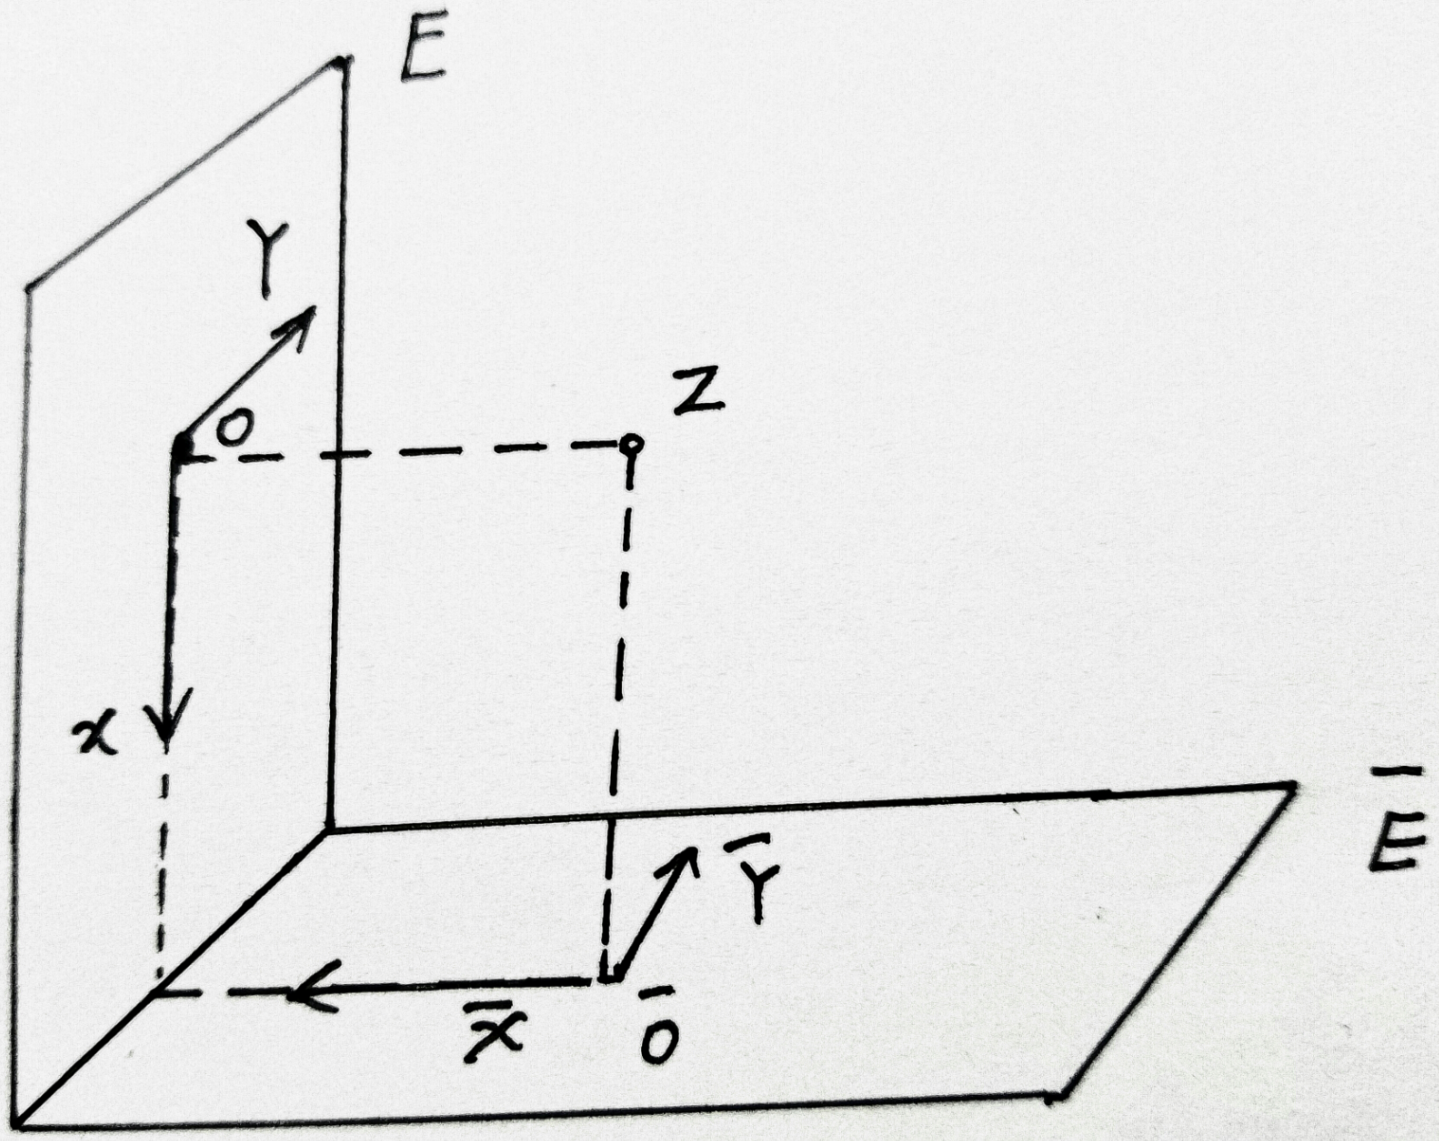 E
Y
O
Z
x
E̅
Y̅
x̅
O̅